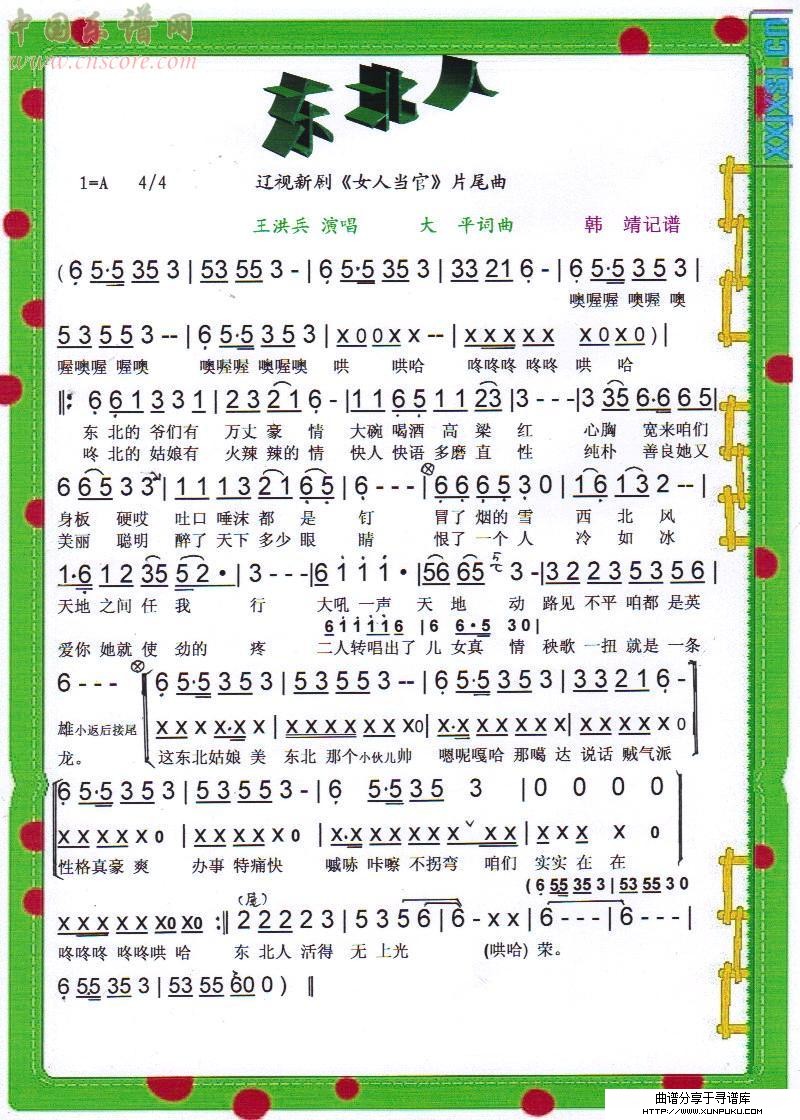 中国乐谱网
www.cnscore.com
xxjxsj.cn
东北人
1=A 4/4 辽视新剧《女人当官》片尾曲
王洪兵 演唱 大 平词曲 韩 靖记谱
( 6 5·5 35 3 | 53 55 3 - | 6 5·5 35 3 | 33 21 6 - | 6 5·5 3 5 3 |
噢喔喔 噢喔 噢
5 3 5 5 3 -- | 6 5·5 3 5 3 | x 0 0 x x -- | x x x x x x 0 x 0 ) |
喔噢喔 喔噢 噢喔喔 噢喔噢 哄 哄哈 咚咚咚 咚咚 哄 哈
‖: 6 6 1 3 3 1 | 2 3 2 1 6 - | 1 1 6 5 1 1 23 | 3 - - - | 3 35 6·6 65 |
东 北的 爷们有 万丈 豪 情 大碗 喝酒 高 粱 红 心胸 宽来咱们
咚 北的 姑娘有 火辣 辣的 情 快人 快语 多磨 直 性 纯朴 善良她又
6 6 5 3 3 | 1 1 1 3 2 1 6 5 | 6 - - - | 6 6 6 5 3 0 | 1 6 1 3 2 -- |
身板 硬哎 吐口 唾沫 都 是 钉 冒了 烟的 雪 西 北 风
美丽 聪明 醉了 天下 多少 眼 睛 恨了 一个 人 冷 如 冰
1·6 1 2 35 5 2· | 3 - - - | 6 1 1 1· | 56 65 3 | 3 2 2 3 5 3 5 6 |
天地 之间 任 我 行 大吼 一声 天 地 动 路见 不平 咱都 是英
6 1 1 1 1 6 | 6 6·5 3 0 |
爱你 她就 使 劲的 疼 二人转唱出了 儿 女真 情 秧歌 一扭 就是 一条
6 - - - 6 5·5 3 5 3 | 5 3 5 5 3 - | 6 5·5 3 5 3 | 3 3 2 2 1 6 - |
雄小返后接尾 x x x x·x x | x x x x x x x0 | x·x x x x x x | x x x x x x 0
龙。 这东北姑娘 美 东北 那个小伙儿帅 嗯呢嘎哈 那喝 达 说话 贼气派
6 5·5 3 5 3 | 5 3 5 5 3 - | 6 5·5 3 5 3 | 0 0 0 0
x x x x x 0 | x x x x x x0 | x·x x x x x x x x | x x x x 0
性格真豪 爽 办事 特痛快 嘁哧 咔嚓 不拐弯 咱们 实实 在 在
( 6 55 35 3 | 53 55 3 0
(尾)
x x x x x x0 x0 :‖ 2 2 2 2 3 | 5 3 5 6 | 6 - x x | 6 - - - | 6 - - - |
咚咚咚 咚咚哄 哈 东 北人 活得 无 上光 (哄哈) 荣。
6 55 35 3 | 53 55 600 ) ‖
曲谱分享于寻谱库
HTTP://WWW.XUNPUKU.COM